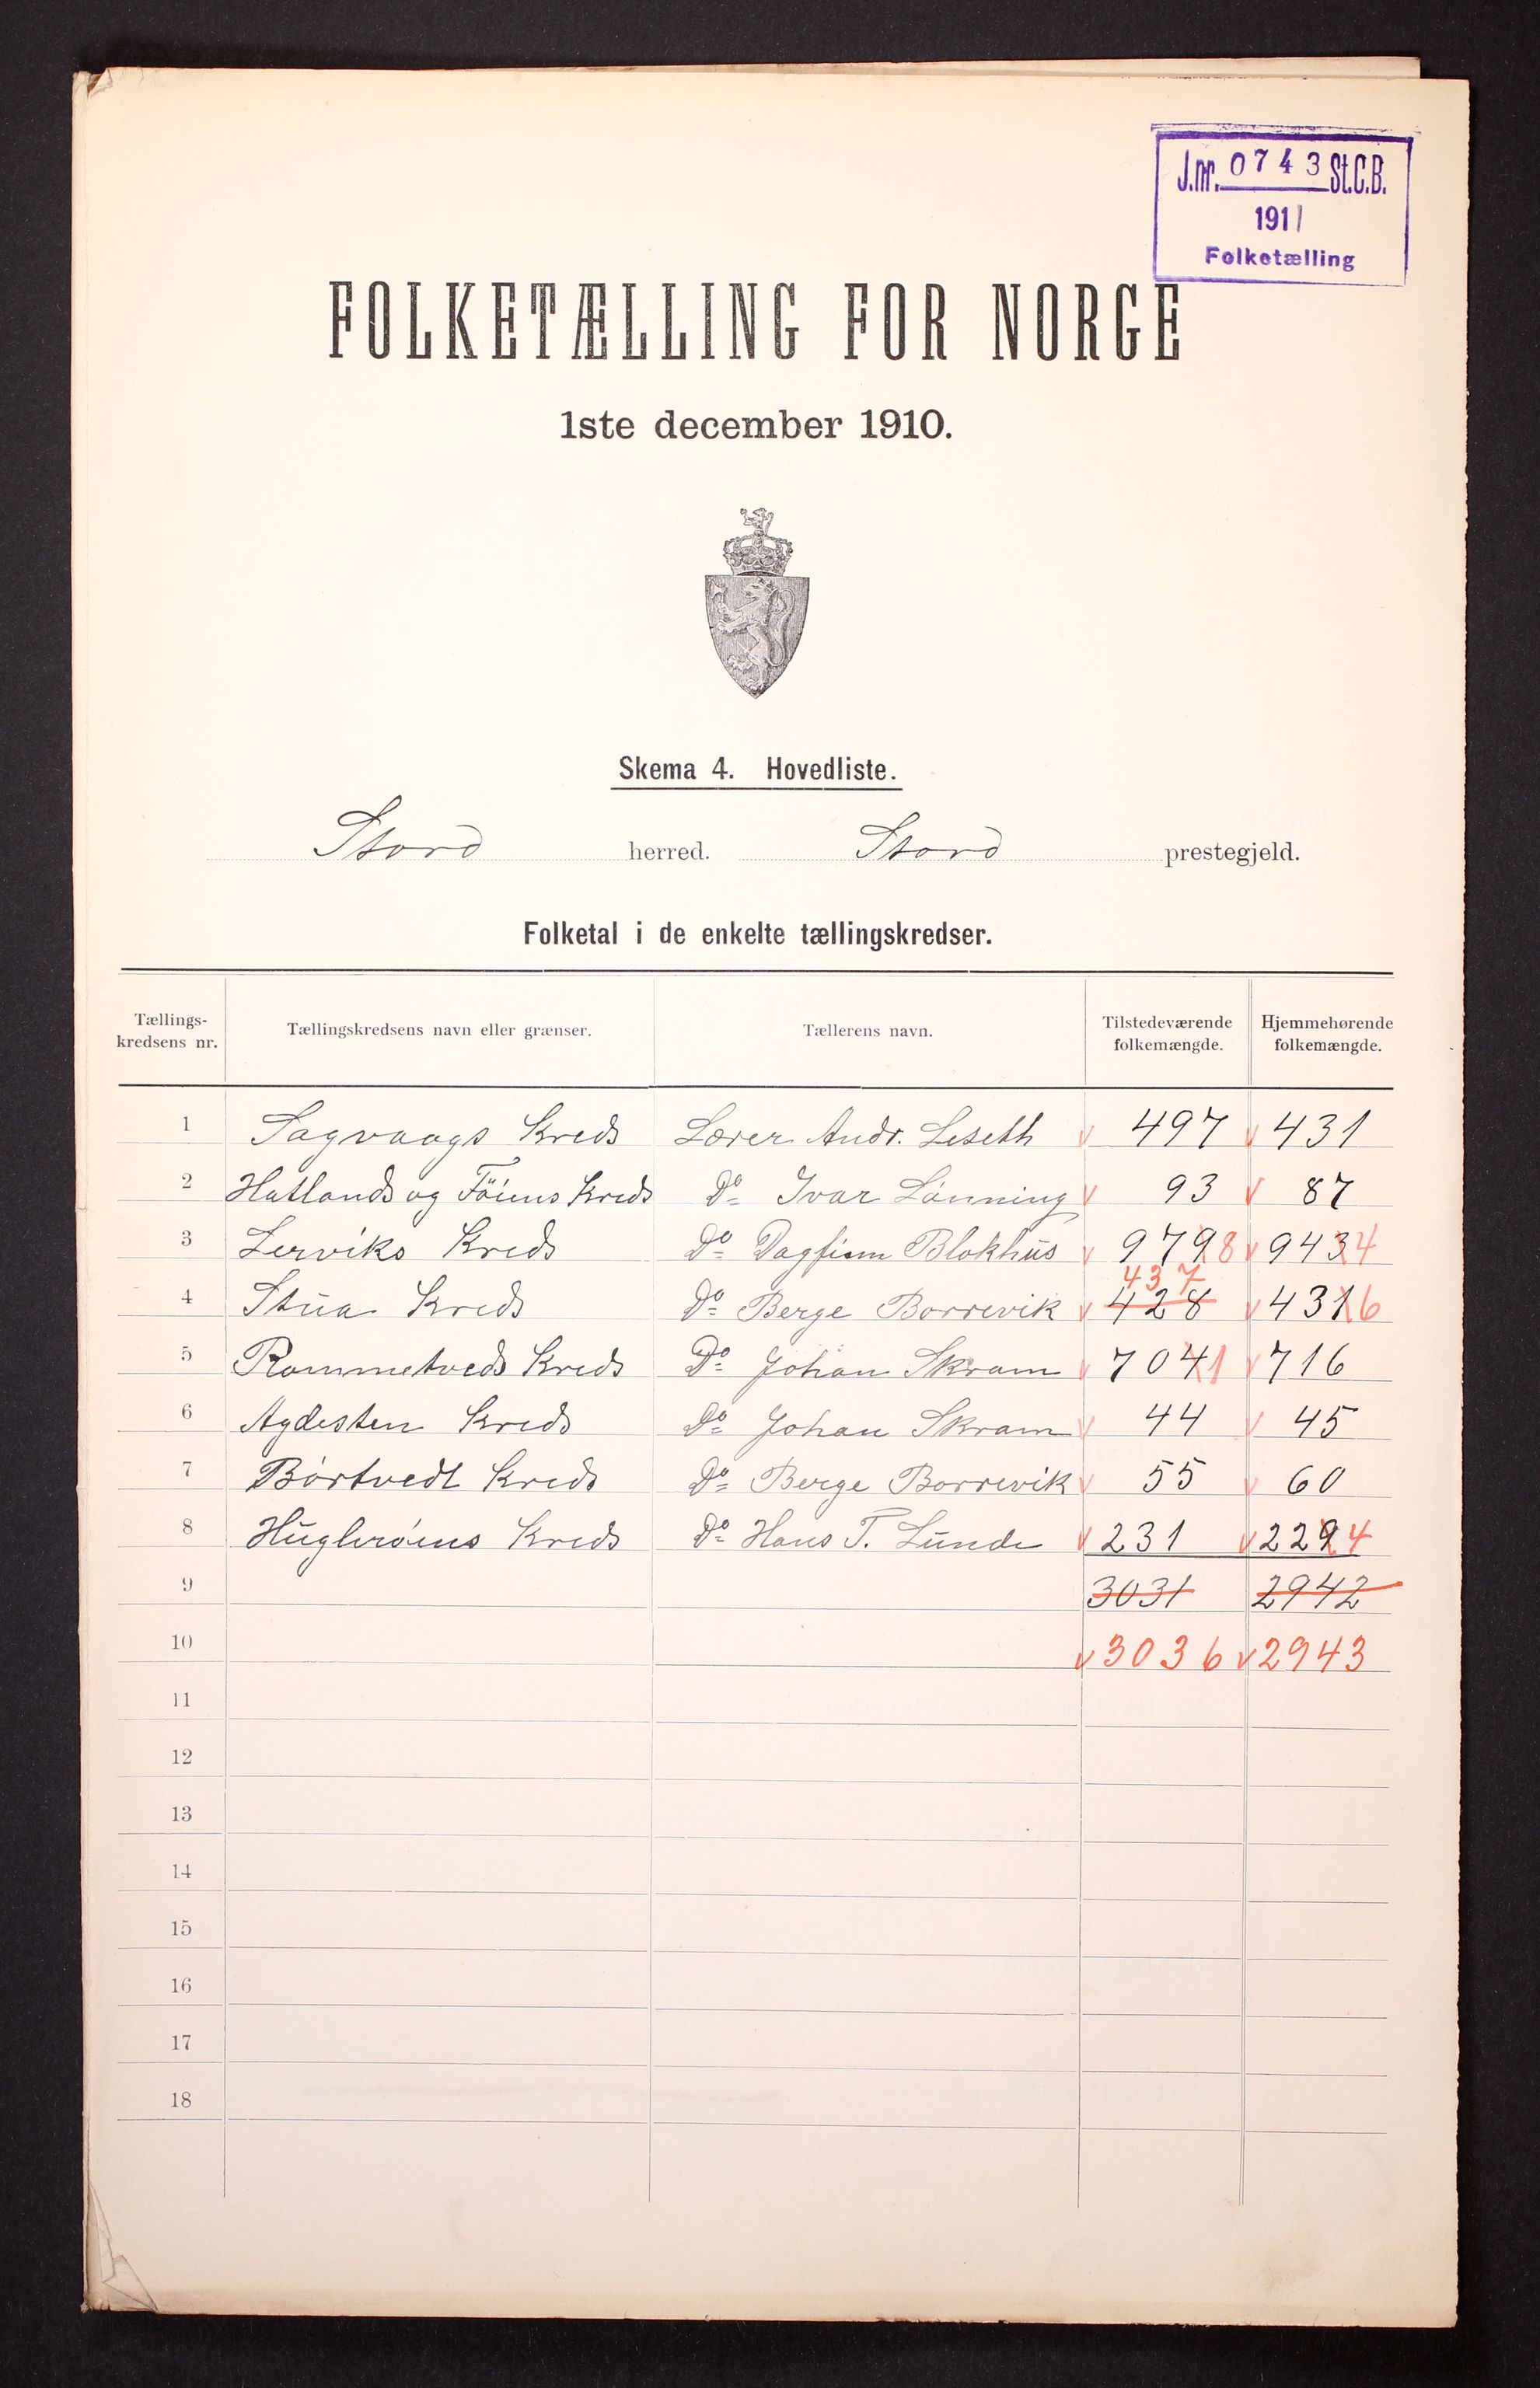 J.nr. 0743 St.C.B.
1911
Folketælling
FOLKETÆLLING FOR NORGE
1ste december 1910.
Skema 4. Hovedliste.
Stord herred. Stord prestegjeld.
Folketal i de enkelte tællingskredser.
Tællings-kredsens nr. Tællingskredsens navn eller grænser. Tællerens navn. Tilstedeværende folkemængde. Hjemmehørende folkemængde.
1 Sagvaags Kreds Lærer Andr. Leseth v 497 v 431
2 Hatlands og Föiens Kreds Do Ivar Lönning v 93 v 87
3 Lerviks Kreds Do Dagfinn Blokhus v 9798 v 9434
437
4 Stua Kreds Do Berge Borrevik v 428 v 4316
5 Rommetveds Kreds Do Johan Skram v 7041 v 716
6 Agdesten Kreds Do Johan Skram v 44 v 45
7 Börtvedt Kreds Do Berge Borrevik v 55 v 60
8 Huglerøens Kreds Do Hans T. Lunde v 231 v 2294
9 3031 2942
10 v 3036 v 2943
11
12
13
14
15
16
17
18